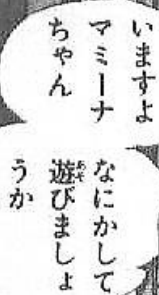 いますよ
マミーナ
ちゃん
なにかして
遊びましょ
うか